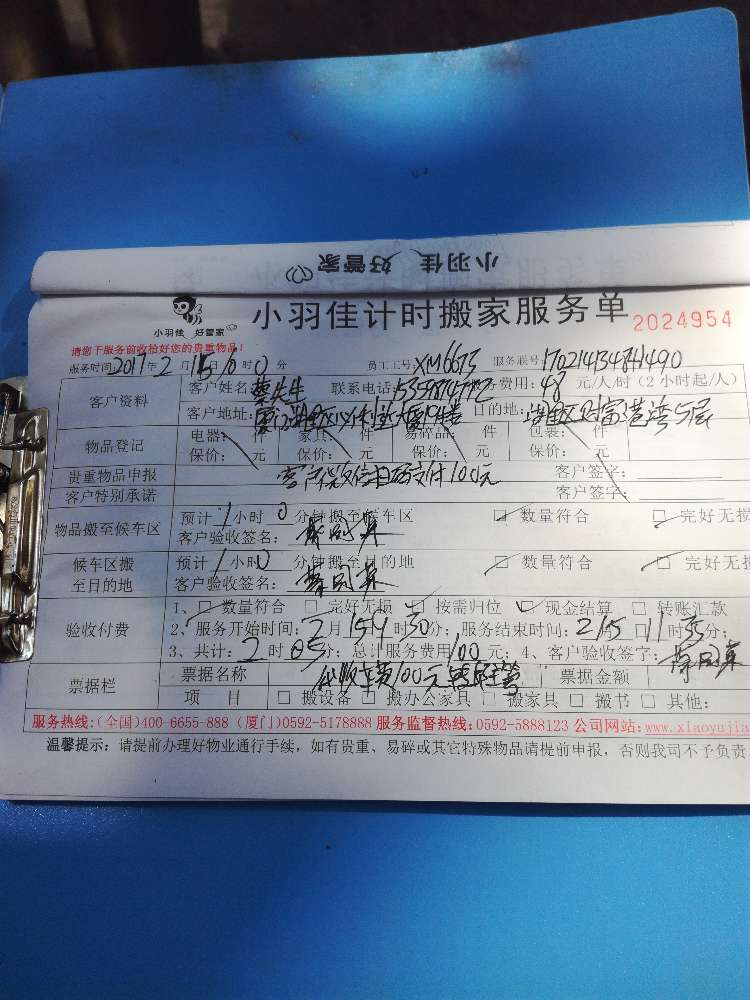 小羽佳 好管家
小羽佳 好管家
小羽佳计时搬家服务单 2024954
请您于服务前收拾好您的贵重物品！
服务时间: 2017年2月15日 时0分 员工工号: XM6673 服务联号: 170214134841490
客户资料 客户姓名: 先生 联系电话: 服务费用: 48 元/人/时 (2小时起/人)
客户地址: 目的地: 财富港湾5层
物品登记 电器: 件 家具: 件 易碎品: 件 包装: 件
保价: 元 保价: 元 保价: 元 保价: 元
贵重物品申报 客户微信扫码支付100元 客户签字:
客户特别承诺 客户签字:
物品搬至候车区 预计1小时0分钟搬至候车区 数量符合 完好无损
客户验收签名:
候车区搬至目的地 预计1小时0分钟搬至目的地 数量符合 完好无损
客户验收签名:
验收付费 1、□数量符合 □完好无损 □按需归位 □现金结算 □转账汇款
2、服务开始时间: 2月15日9时30分; 服务结束时间: 2月15日11时35分;
3、共计: 2时05分; 总计服务费用100元; 4、客户验收签字:
票据栏 票据名称 100元 票据金额
项 目 □搬设备 □搬办公家具 □搬家具 □搬书 □其他:
服务热线:(全国)400-6655-888 (厦门)0592-5178888 服务监督热线:0592-5888123 公司网站:www.xiaoyujia
温馨提示: 请提前办理好物业通行手续, 如有贵重、易碎或其它特殊物品请提前申报, 否则我司不予负责